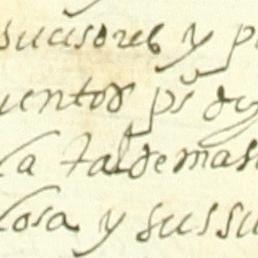 sucesores y p
uentos ps de
la tal demas
cosa y sus su